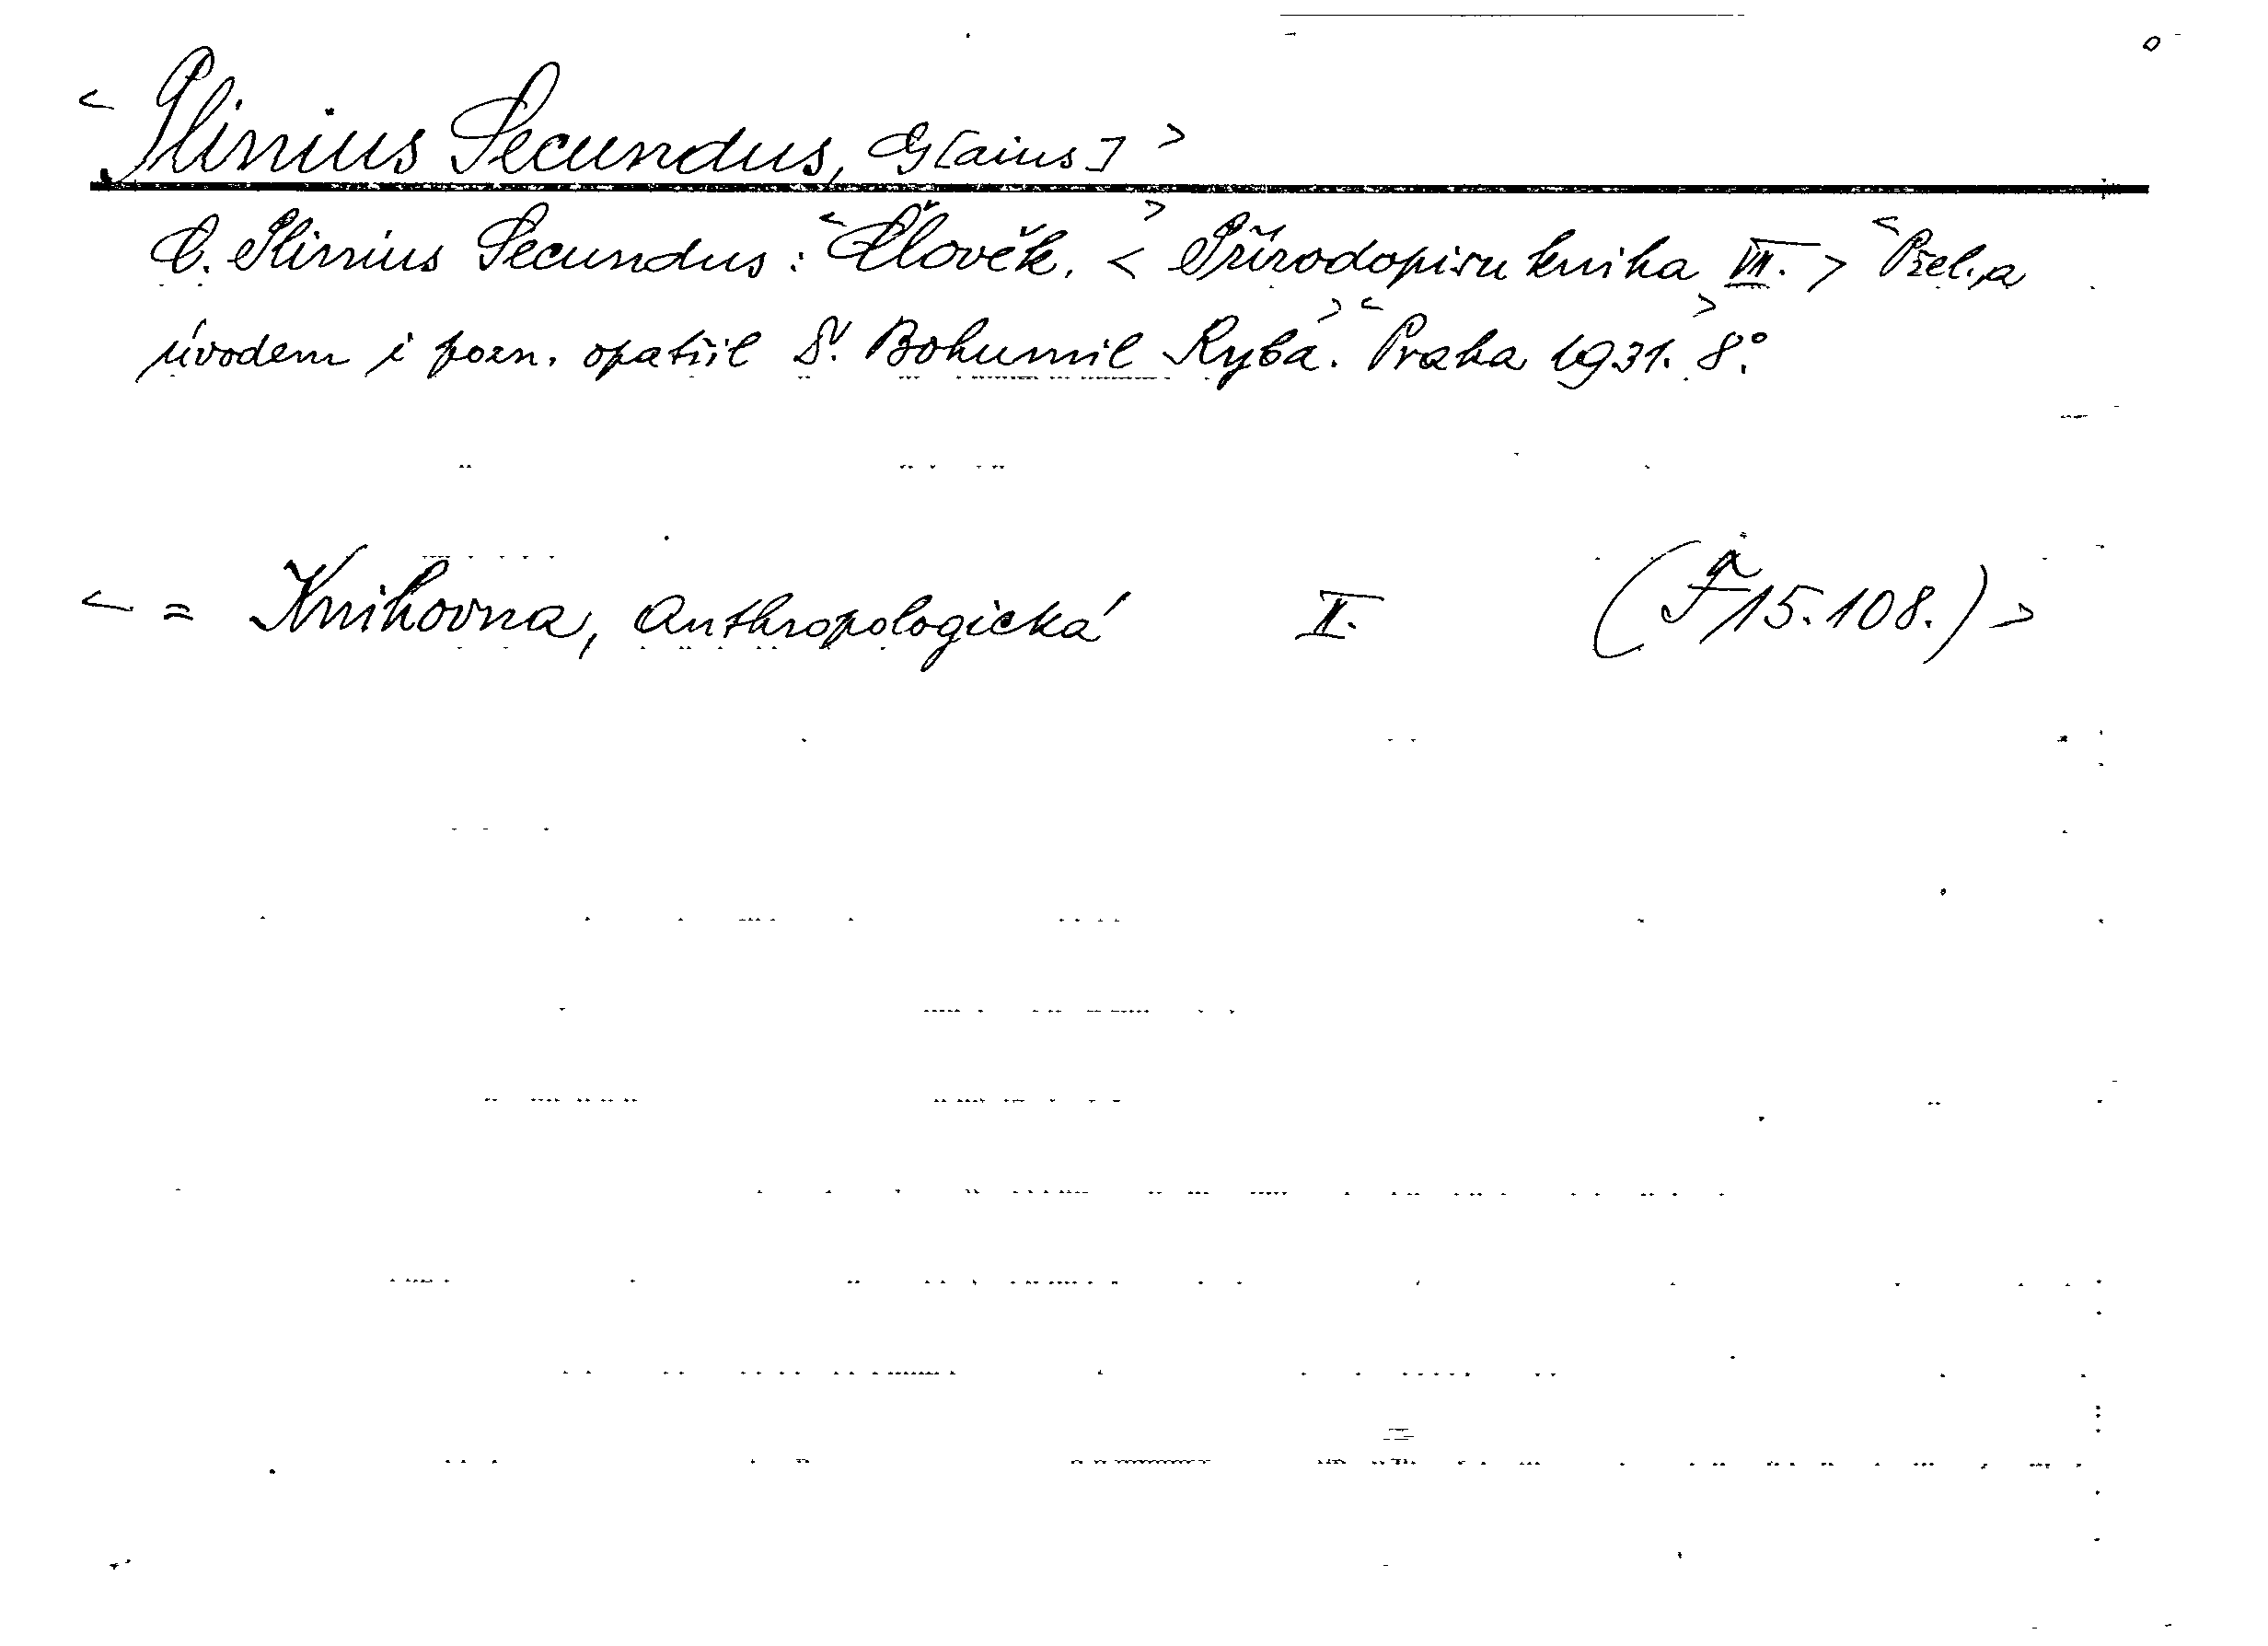 < Plinius Secundus, G[aius] >
C. Plinius Secundus: < Člověk. > < Přírodopisu kniha VII. > < Přel. a
úvodem i pozn. opatřil Dr. Bohumil Ryba. > < Praha 1931. > 8°.
< = Knihovna, Anthropologická II. (F 15.108.) >